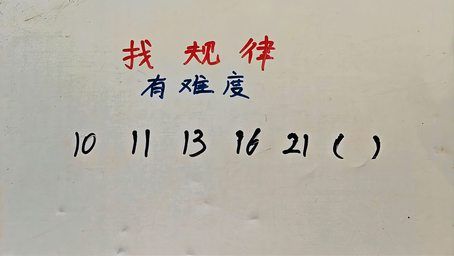 找规律
有难度
10 11 13 16 21 ( )